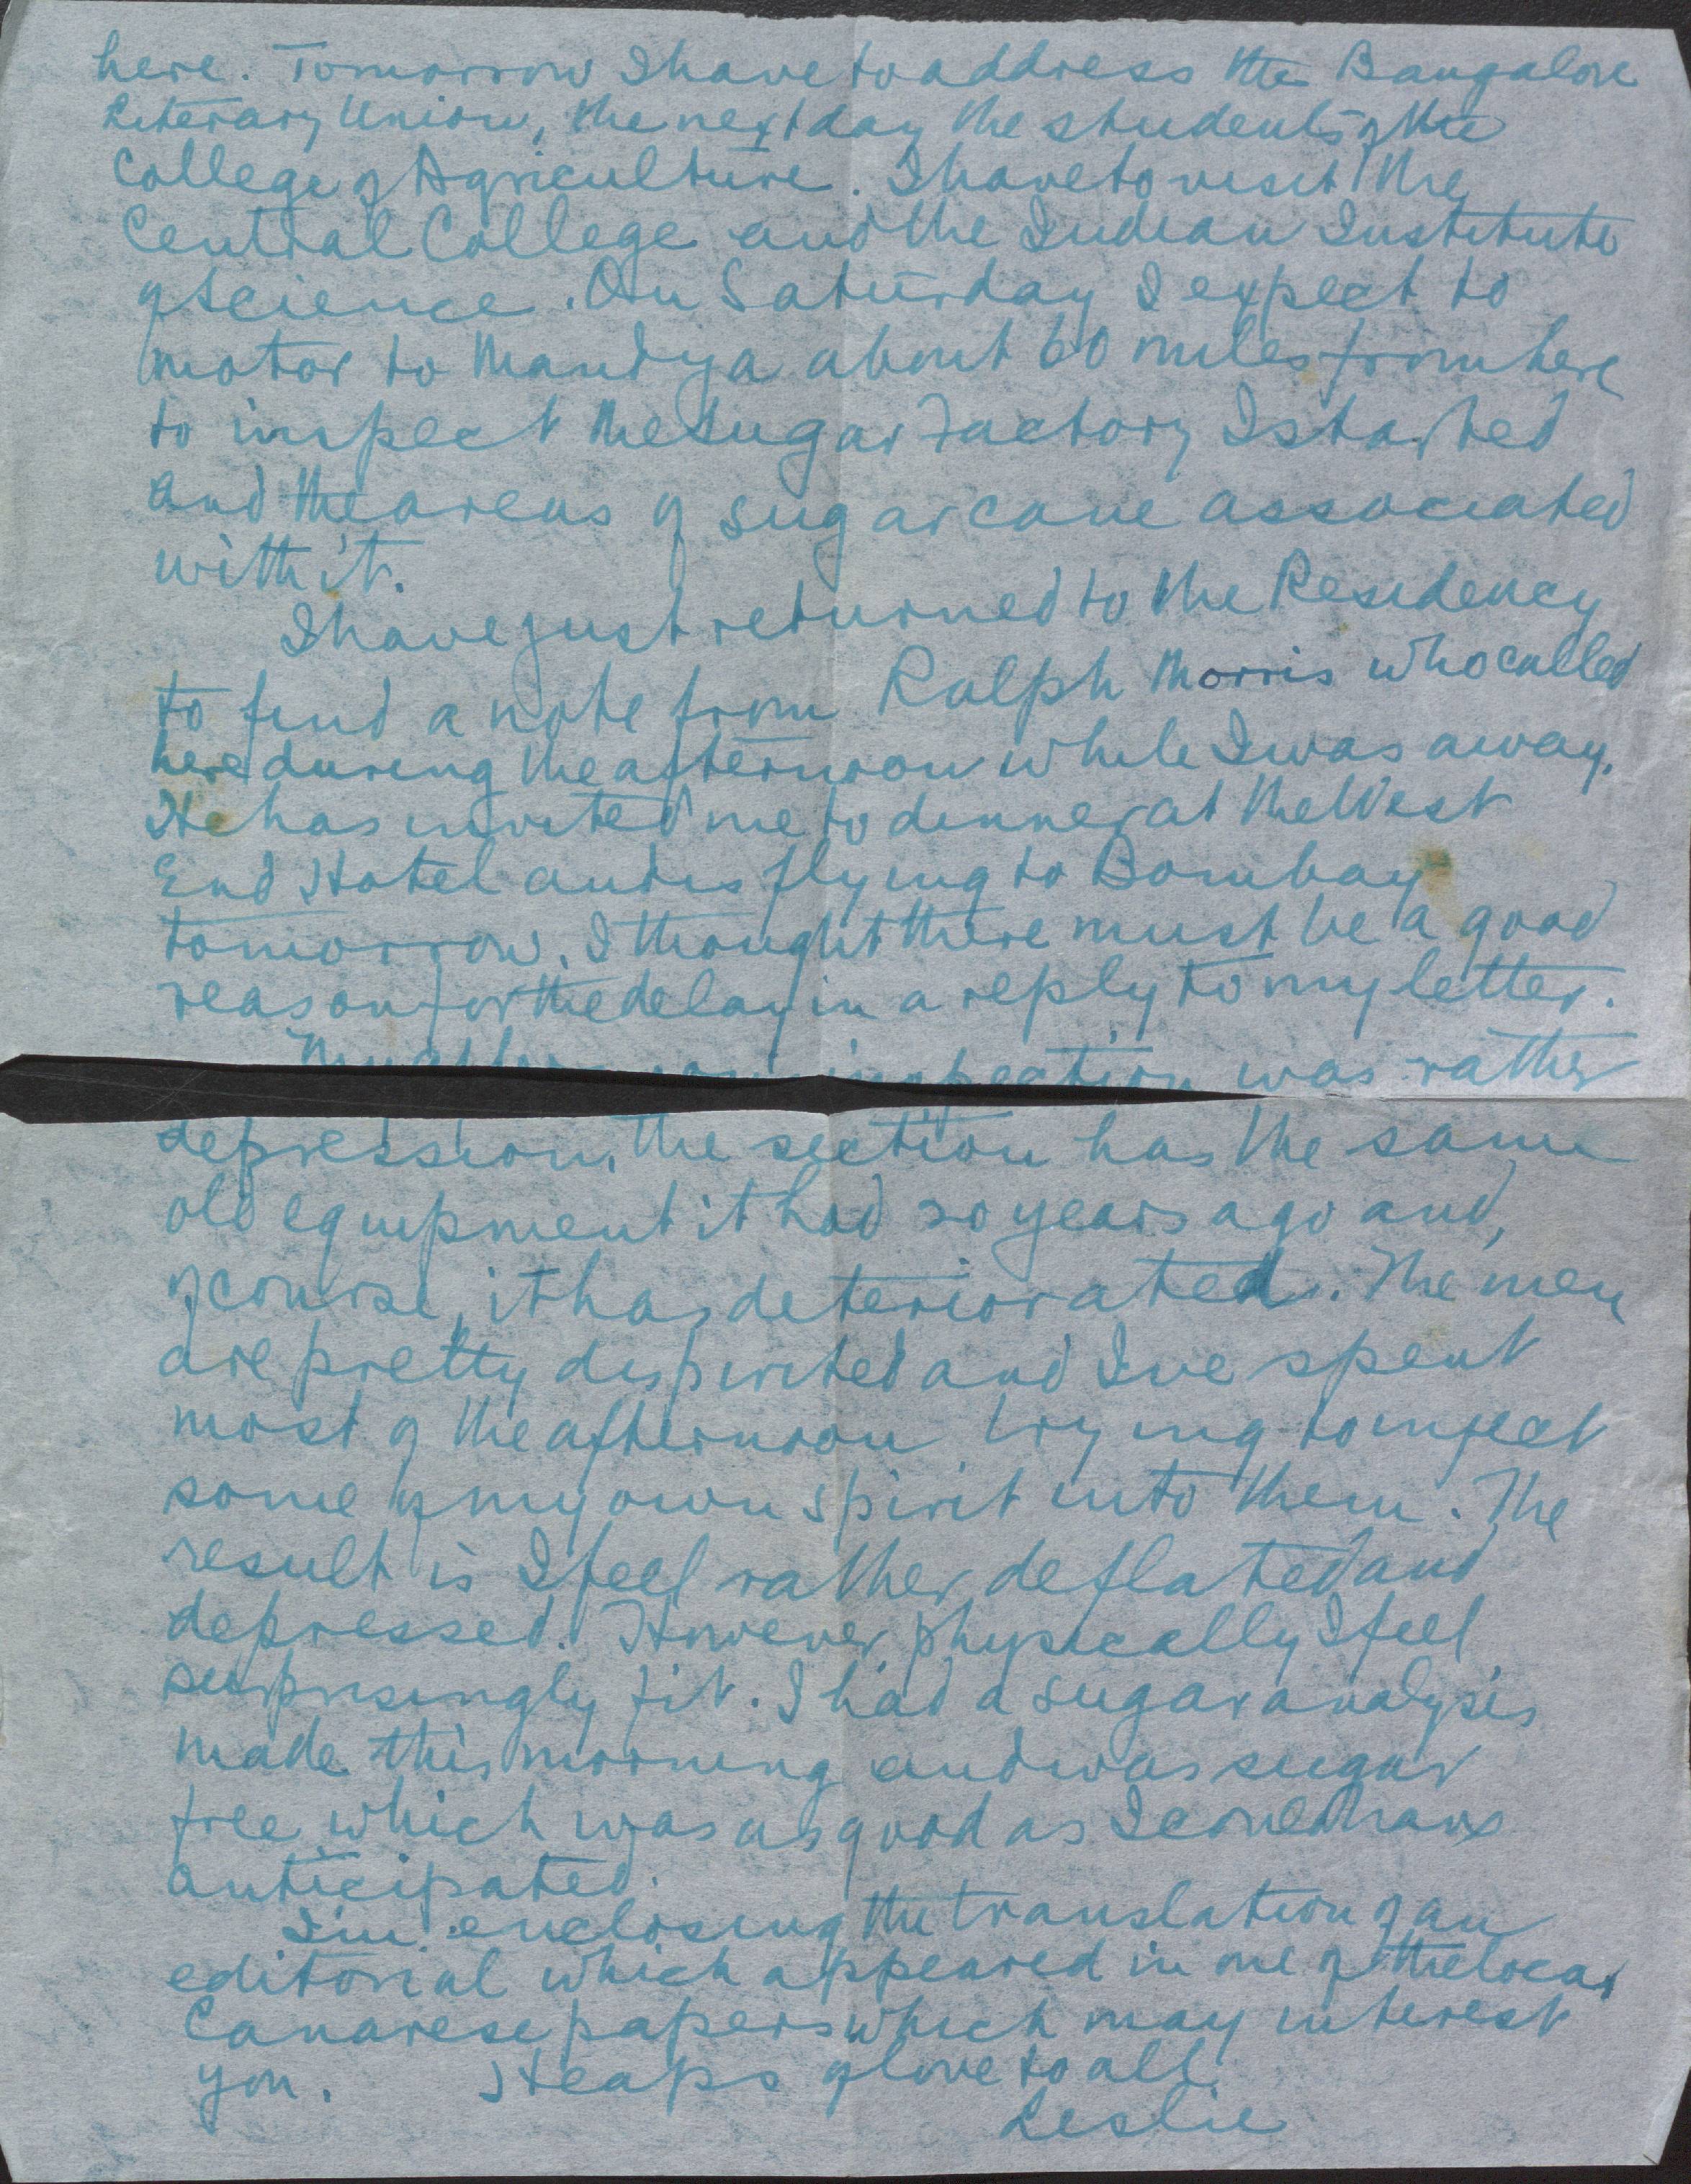 here. Tomorrow I have to address the Bangalore
Literary Union, the next day the students of the
College of Agriculture. I have to visit the
Central College and the Indian Institute
of Science. On Saturday I expect to
motor to Mandya about 60 miles from here
to inspect the Sugar Factory I started
and the areas of sugar cane associated
with it.
I have just returned to the Residency
to find a note from Ralph Morris who called
here during the afternoon while I was away.
He has invited me to dinner at the West
End Hotel and is flying to Bombay
tomorrow. I thought there must be a good
reason for the delay in a reply to my letter.
My afternoon inspection was rather
depression. The section has the same
old equipment it had 20 years ago and,
of course, it has deteriorated. The men
are pretty dispirited and I've spent
most of the afternoon trying to inject
some of my own spirit into them. The
result is I feel rather deflated and
depressed. However, physically I feel
surprisingly fit. I had a sugar analysis
made this morning and was sugar
free which was as good as I could have
anticipated.
I'm enclosing the translation of an
editorial which appeared in one of the local
Canarese papers which may interest
you. Heaps of love to all.
Leslie